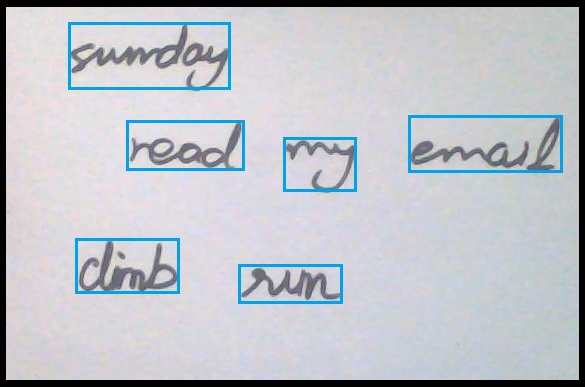 sunday
read my email
climb run